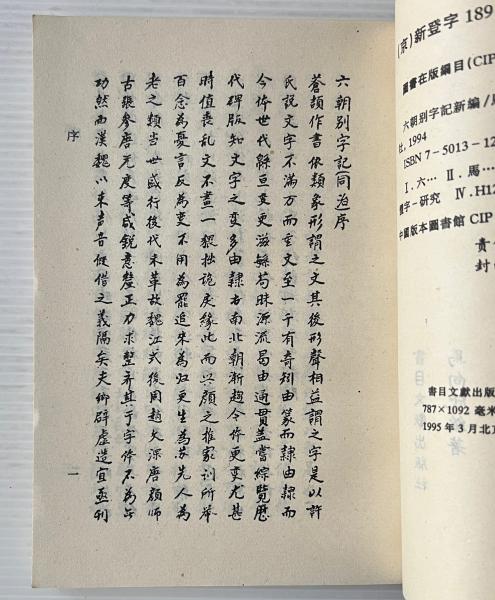 六朝別字記(同治)序
蒼頡作書依類象形謂之文其後形聲相益謂之字是以許
氏說文字不滿万而重文至一千有奇别由篆而隸由隸而
今体世代緜亘变更滋緐苟昧源流曷由通貫盖嘗綜覽歷
代碑版知文字之变多由隸古南北朝漸趋今体更变尤甚
時值丧乱文不盡一猥拙詭戾緣此而兴顏之推家训所举
百念為憂言反為变不用為罷追来為归更生為苏先人為
老之類当世盛行後代未革故魏江式後周趙文深唐顏師
古張参唐元度等咸銳意釐正力求整齐其于字体不為無
功然西漢魏以来声音假借之義隔矣夫鄉辟虚造宜亟刊
序
一
(京)新登字189
圖書在版編目(CIP
六朝别字記新編/馬
社,1994
ISBN 7-5013-12
Ⅰ.六… Ⅱ.馬…
體字-研究 Ⅳ.H12
中國版本圖書館 CIP
責
封
書目文獻出版
787×1092 毫米
1995 年 3 月北京